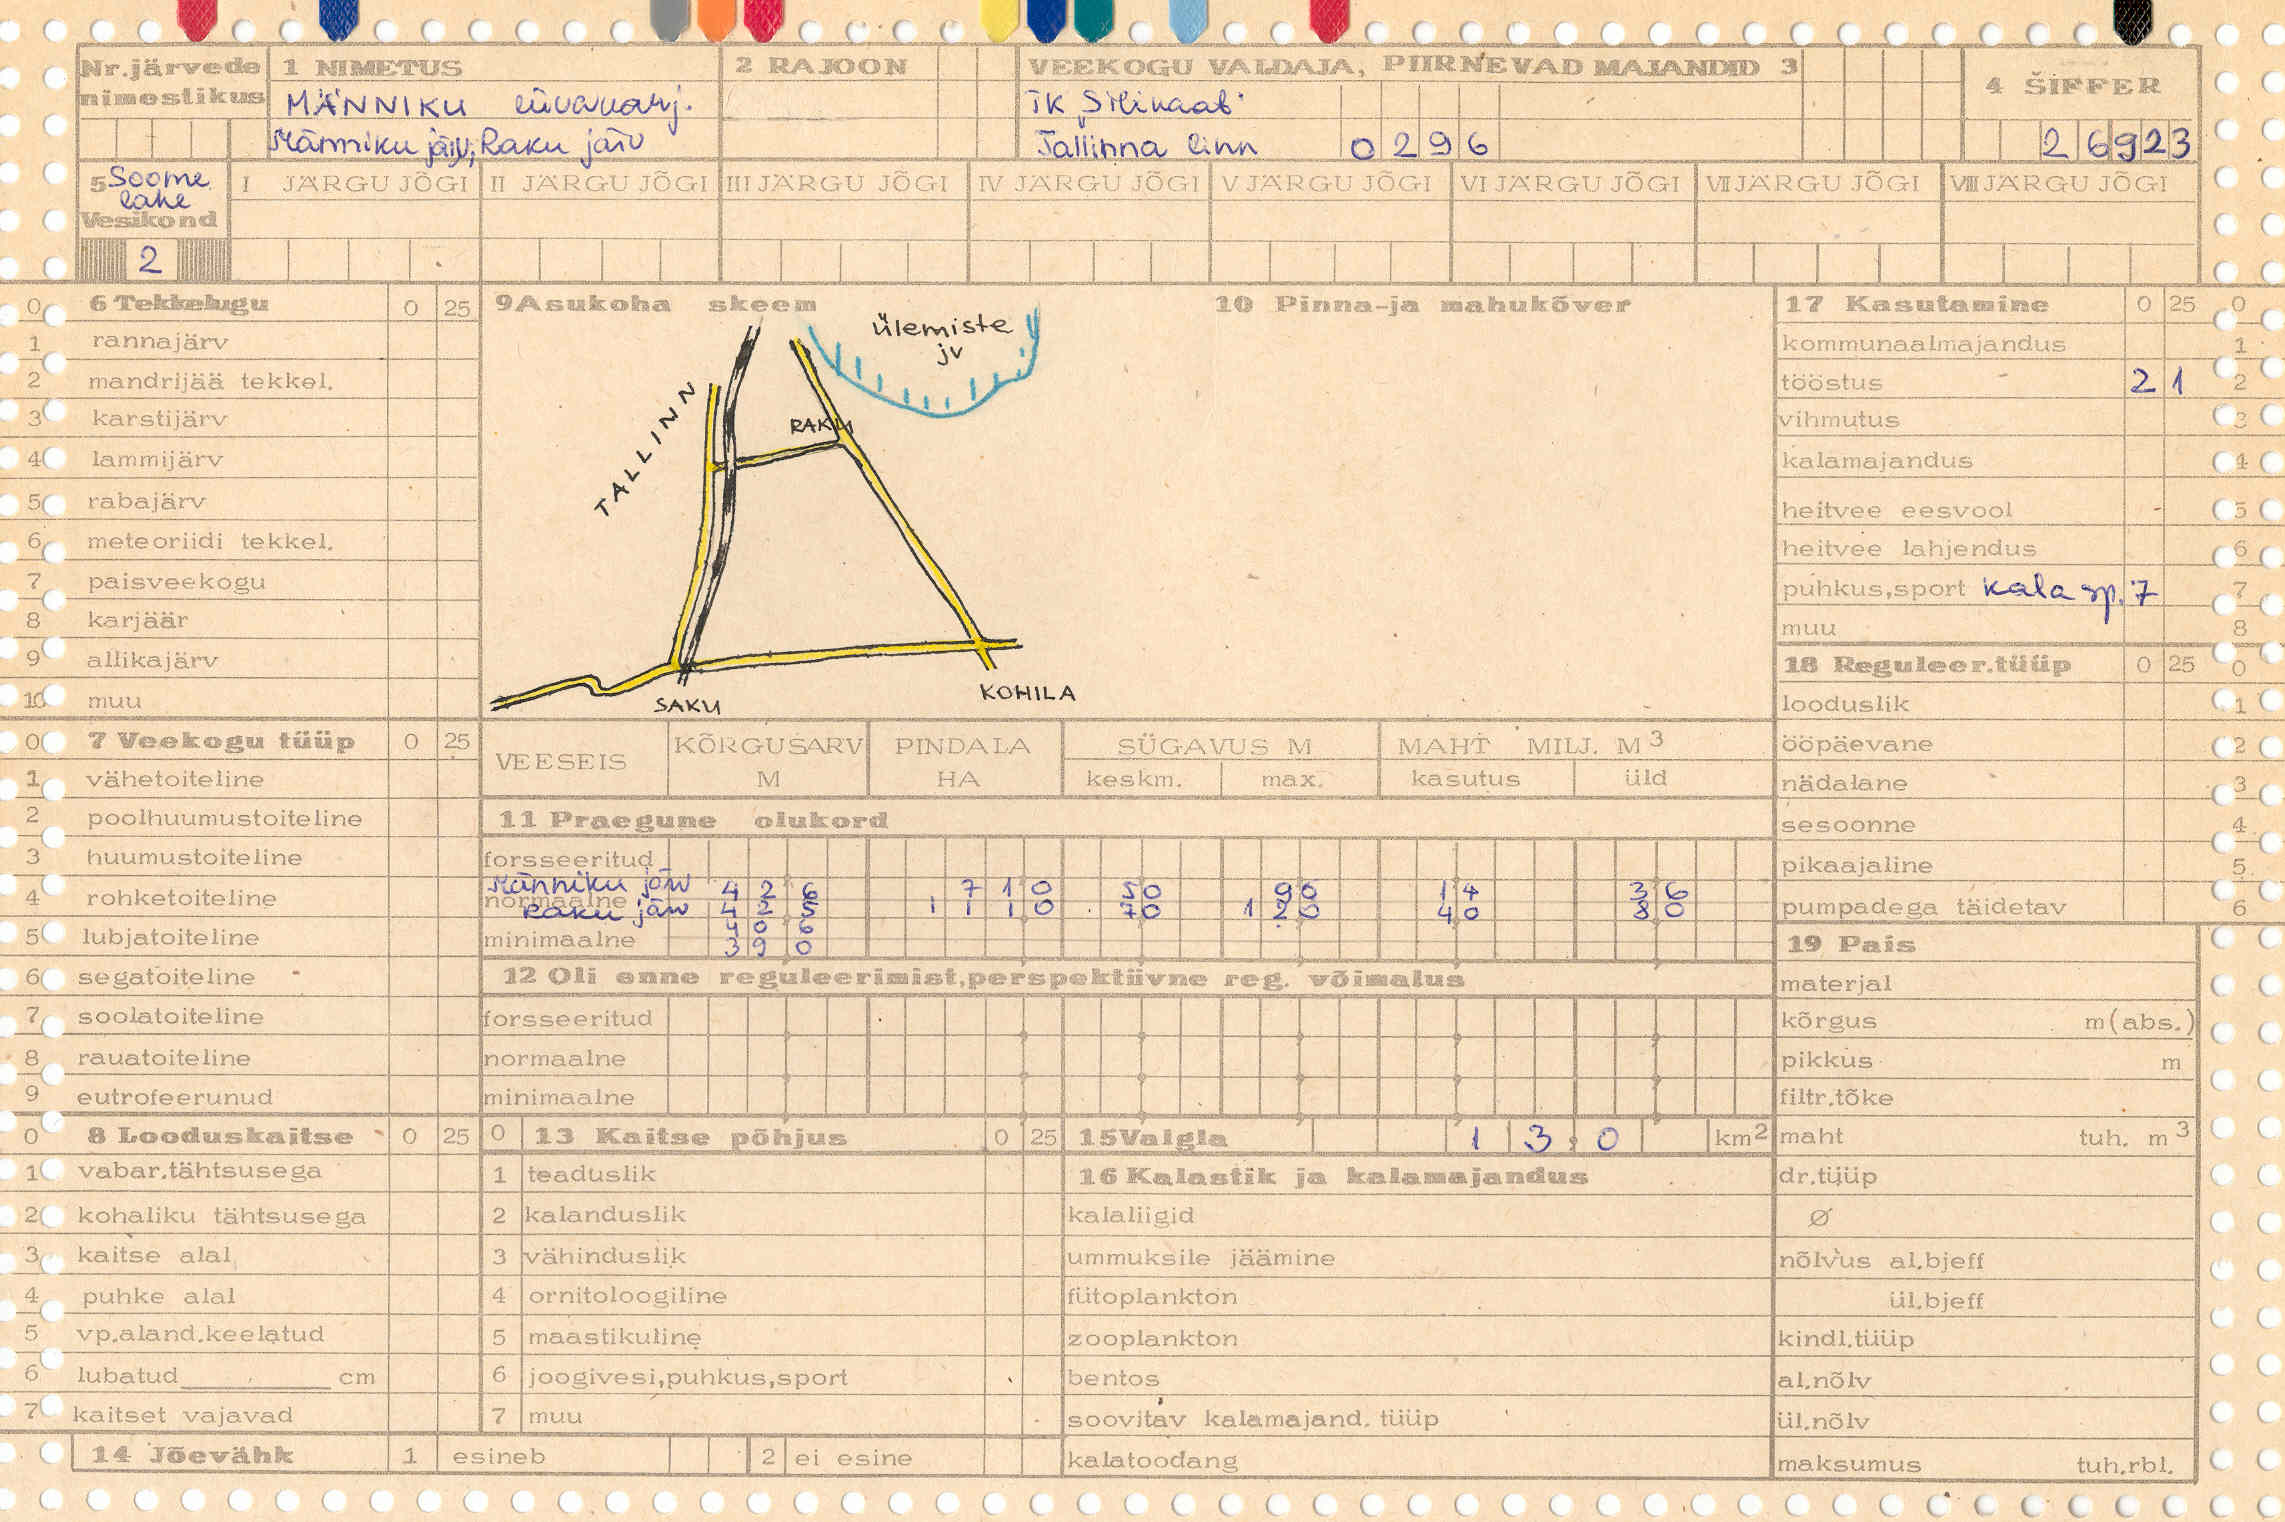 Nr.järvede nimestikus
1 NIMETUS
MÄNNIKU liivakarj.
Männiku järv; Raku järv
2 RAJOON
VEEKOGU VALDAJA, PIIRNEVAD MAJANDID 3
TK "Silikaat"
Tallinna linn 0296
4 ŠIFFER
26923
5 Soome lahe
Vesikond
2
I JÄRGU JÕGI
II JÄRGU JÕGI
III JÄRGU JÕGI
IV JÄRGU JÕGI
V JÄRGU JÕGI
VI JÄRGU JÕGI
VII JÄRGU JÕGI
VIII JÄRGU JÕGI
0 6 Tekkelugu 0 25
1 rannajärv
2 mandrijää tekkel.
3 karstijärv
4 lammijärv
5 rabajärv
6 meteoriidi tekkel.
7 paisveekogu
8 karjäär
9 allikajärv
10 muu
0 7 Veekogu tüüp 0 25
1 vähetoiteline
2 poolhuumustoiteline
3 huumustoiteline
4 rohketoiteline
5 lubjatoiteline
6 segatoiteline
7 soolatoiteline
8 rauatoiteline
9 eutrofeerunud
0 8 Looduskaitse 0 25
1 vabar.tähtsusega
2 kohaliku tähtsusega
3 kaitse alal
4 puhke alal
5 vp.aland.keelatud
6 lubatud cm
7 kaitset vajavad
14 Jõevähk 1 esineb 2 ei esine
9 Asukoha skeem
Ülemiste jv
TALLINN
RAKU
SAKU
KOHILA
10 Pinna-ja mahukõver
VEESEIS
KÕRGUSARV M
PINDALA HA
SÜGAVUS M
keskm. max.
MAHT MILJ. M3
kasutus üld
11 Praegune olukord
forsseeritud
Männiku järv 426 710 50 90 14 36
normaalne
Raku järv 425 1110 70 120 40 80
406
minimaalne
390
12 Oli enne reguleerimist,perspektiivne reg. võimalus
forsseeritud
normaalne
minimaalne
0 13 Kaitse põhjus 0 25
1 teaduslik
2 kalanduslik
3 vähinduslik
4 ornitoloogiline
5 maastikuline
6 joogivesi,puhkus,sport
7 muu
15 Valgla 13,0 km2
16 Kalastik ja kalamajandus
kalaliigid
ummuksile jäämine
fütoplankton
zooplankton
bentos
soovitav kalamajand. tüüp
kalatoodang
17 Kasutamine 0 25 0
kommunaalmajandus 1
tööstus 21 2
vihmutus 3
kalamajandus 4
heitvee eesvool 5
heitvee lahjendus 6
puhkus,sport kala sp. 7 7
muu 8
18 Reguleer.tüüp 0 25 0
looduslik 1
ööpäevane 2
nädalane 3
sesoonne 4
pikaajaline 5
pumpadega täidetav 6
19 Pais
materjal
kõrgus m(abs.)
pikkus m
filtr.tõke
maht tuh. m3
dr.tüüp
Ø
nõlvus al.bjeff
ül.bjeff
kindl.tüüp
al.nõlv
ül.nõlv
maksumus tuh.rbl.